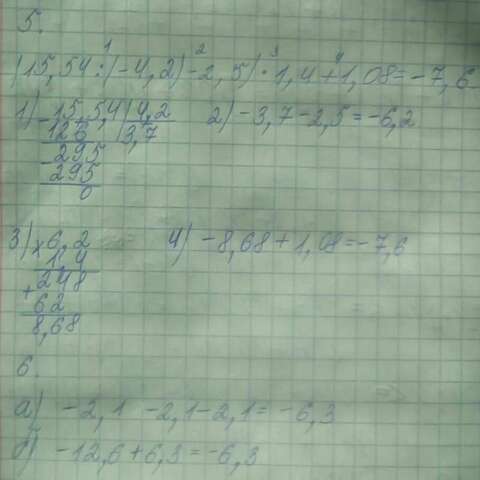 5.
1 2 3 4
(15,54:(-4,2)-2,5)·1,4+1,08=-7,6
1) -15,54|4,2 2) -3,7-2,5=-6,2
126 |3,7
-295
295
0
3) ×6,2 4) -8,68+1,08=-7,6
1,4
+248
62
8,68
6.
а) -2,1 -2,1-2,1=-6,3
б) -12,6+6,3=-6,3